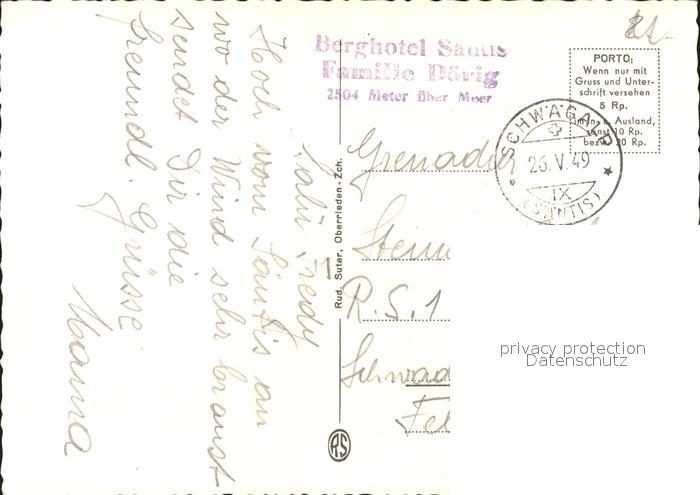 Salü Fredy
Hoch vom Säntis an
wo der Wind sehr braust
sendet Dir die
freundl. Grüsse
Mama
Berghotel Säntis
Familie Dörig
2504 Meter über Meer
PORTO:
Wenn nur mit
Gruss und Unter-
schrift versehen
5 Rp.
Ausland,
sonst 10 Rp.
bezw. 20 Rp.
SCHWÄGALP
26.V.49
IX
(SÄNTIS)
Grenadier
R.S. 1
Rud. Suter, Oberrieden-Zch.
RS
privacy protection
Datenschutz